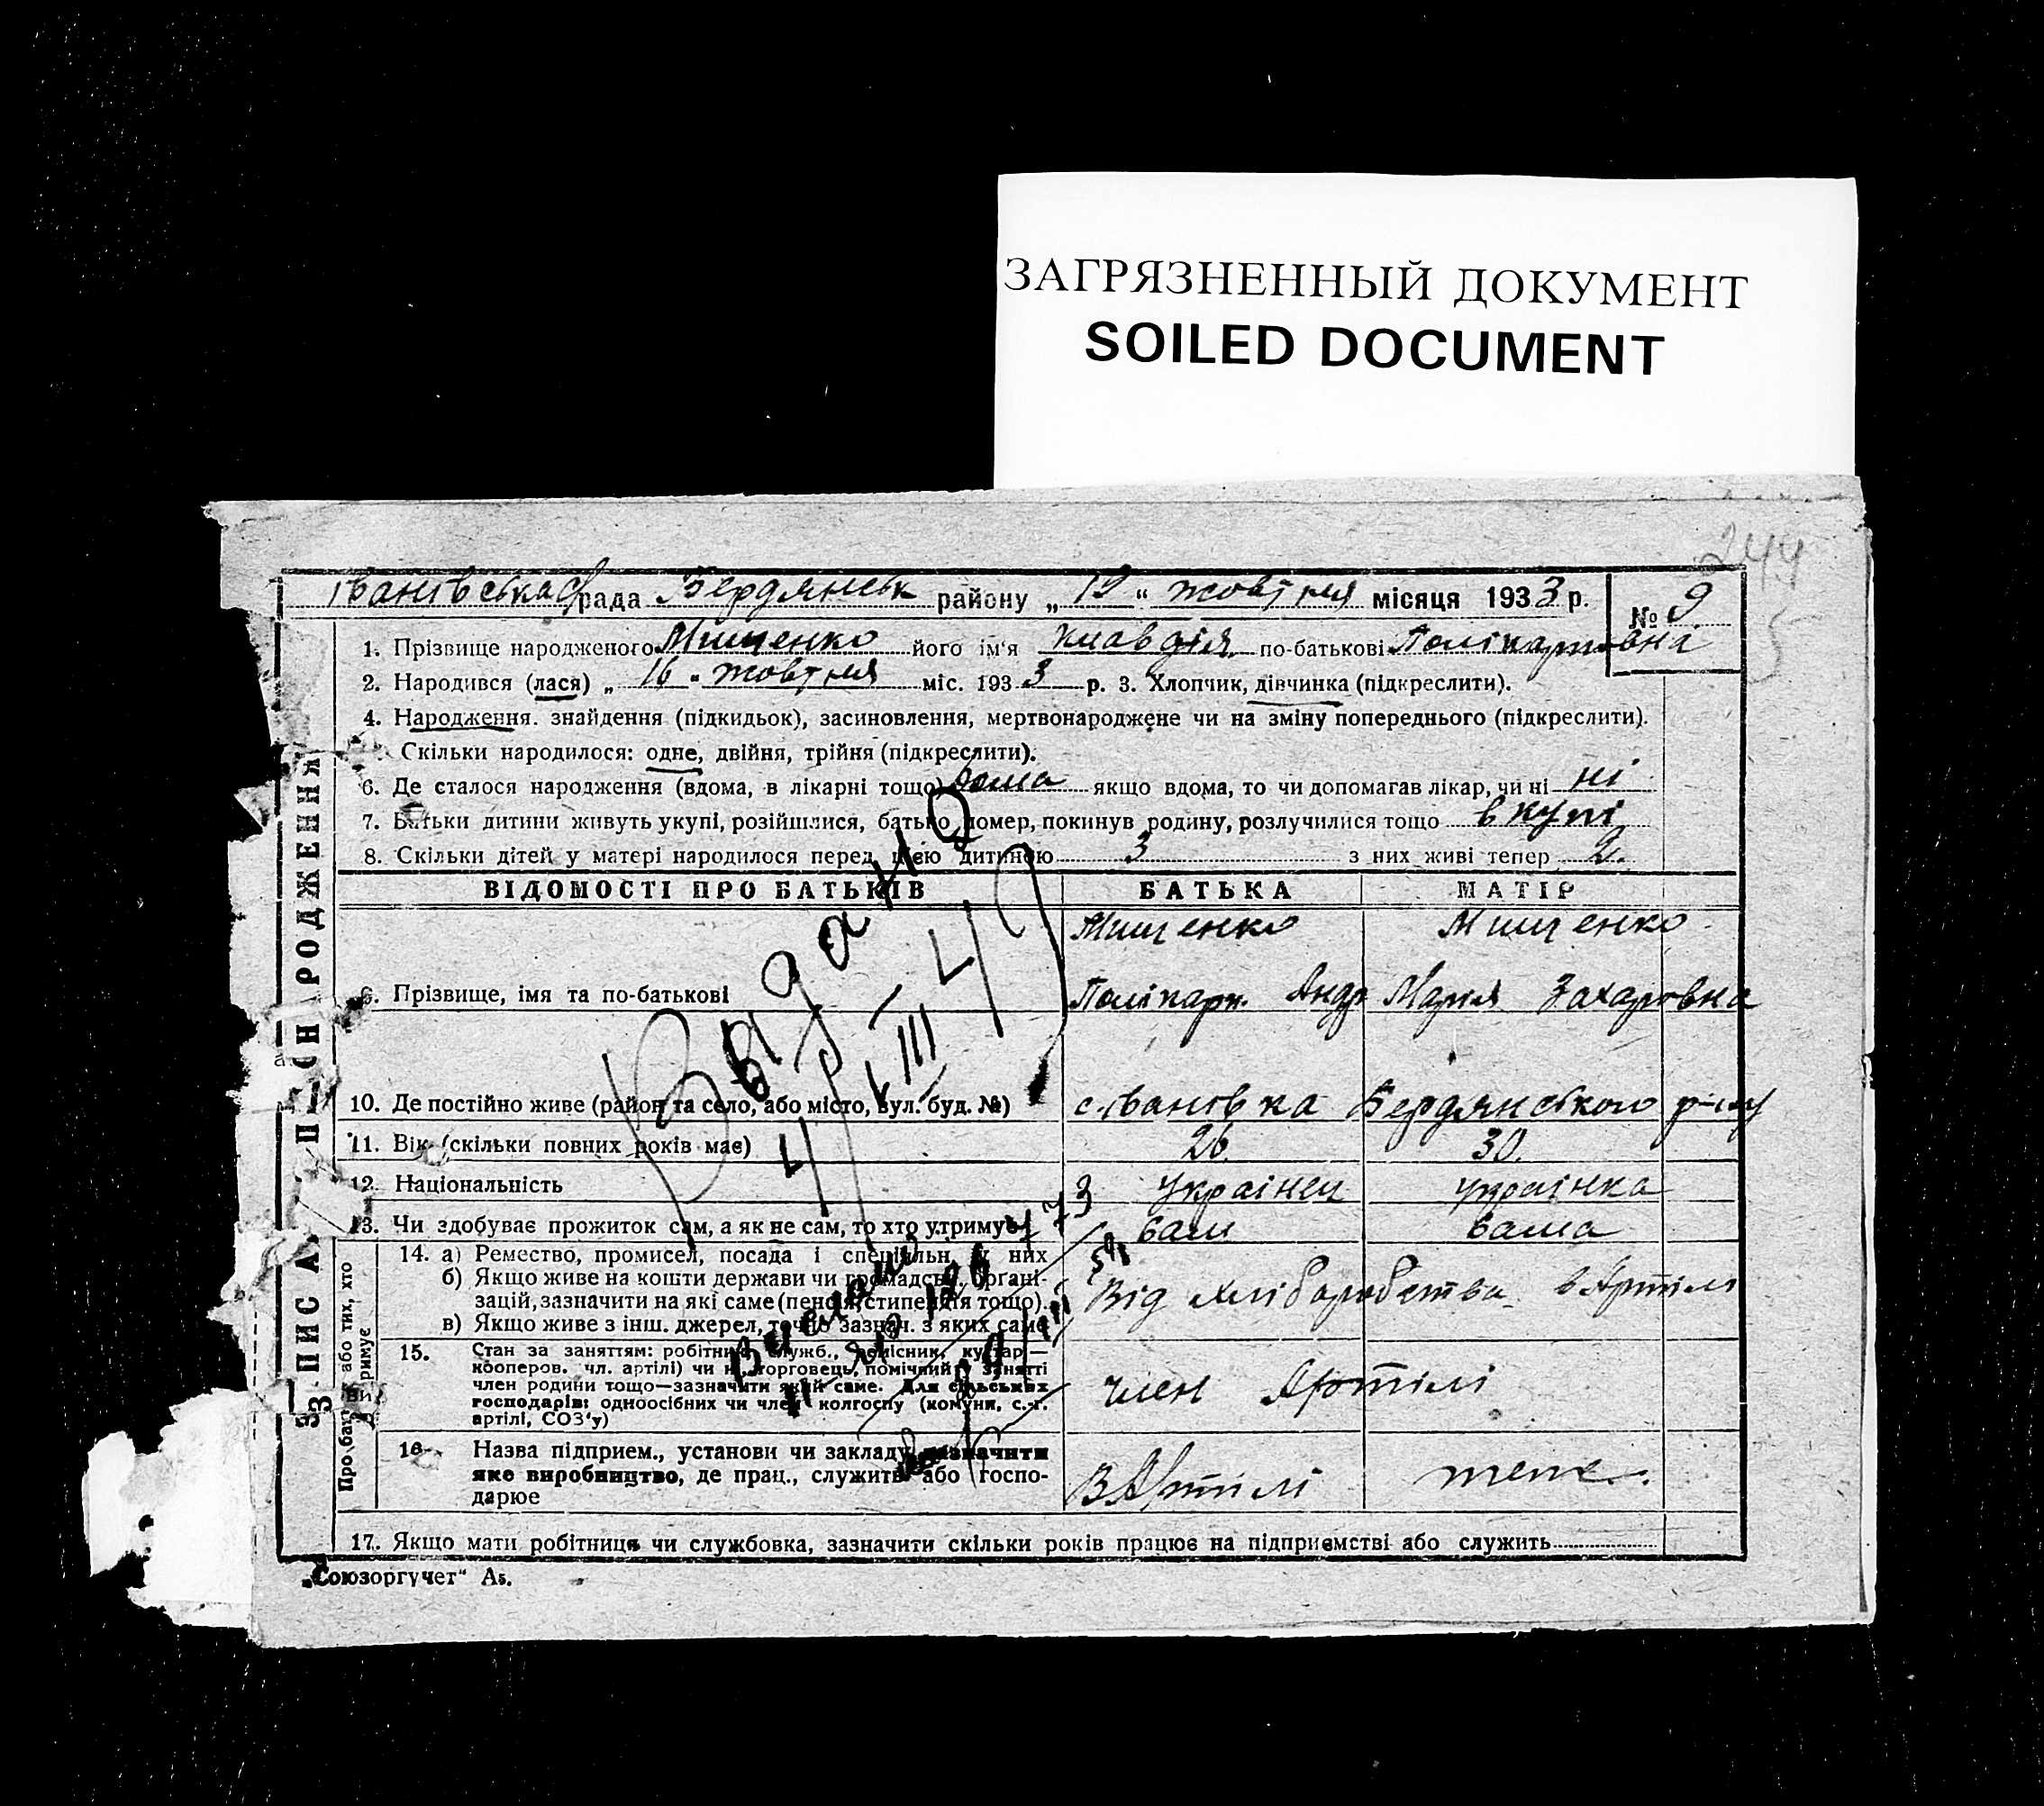 ЗАГРЯЗНЕННЫЙ ДОКУМЕНТ
SOILED DOCUMENT
244
5
Івановська с/рада Бердянськ району „19“ жовтня місяця 1933 р. № 9
1. Прізвище народженого Мищенко його ім'я Клавдія по-батькові Поліпартовна
2. Народився (лася) „16“ жовтня міс. 1933 р. 3. Хлопчик, дівчинка (підкреслити).
4. Народження. знайдення (підкидьок), засиновлення, мертвонароджене чи на зміну попереднього (підкреслити).
Скільки народилося: одне, двійня, трійня (підкреслити).
6. Де сталося народження (вдома, в лікарні тощо) дома якщо вдома, то чи допомагав лікар, чи ні ні
7. Батьки дитини живуть укупі, розійшлися, батько помер, покинув родину, розлучилися тощо вкупі
8. Скільки дітей у матері народилося перед цією дитиною 3 з них живі тепер 2.
ВІДОМОСТІ ПРО БАТЬКІВ БАТЬКА МАТІР
Мищенко Мищенко
9. Прізвище, імя та по-батькові Поліпарп. Андр Марія Захаровна
10. Де постійно живе (район та село, або місто, вул. буд. №) с. Івановка Бердянського р-ну
11. Вік (скільки повних років має) 26. 30.
12. Національність Українец українка
13. Чи здобуває прожиток сам, а як не сам, то хто утримує сам сама
14. а) Ремество, промисел, посада і спеціяльн. у них
б) Якщо живе на кошти держави чи громадськ. органі-
зацій, зазначити на які саме (пенсія, стипендія тощо).. Від хліборобства в Артілі
в) Якщо живе з інш. джерел, точно зазнач. з яких саме
15. Стан за заняттям: робітник, служб., ремісник, кустар—
кооперов. чл. артілі) чи ні, торговець, помічний у занятті
член родини тощо—зазначити який саме. Для сільських член Артілі
господарів: одноосібних чи член колгоспу (комуни, с.-г.
артілі, СОЗ'у)
16. Назва підприєм., установи чи закладу, зазначити
яке виробництво, де прац., служить або госпо- В Артілі теж.
дарює
17. Якщо мати робітниця чи службовка, зазначити скільки років працює на підприємстві або служить
„Союзоргучет“ А5.
Выдано
ЗАПИС АКТА ПРО НАРОДЖЕННЯ